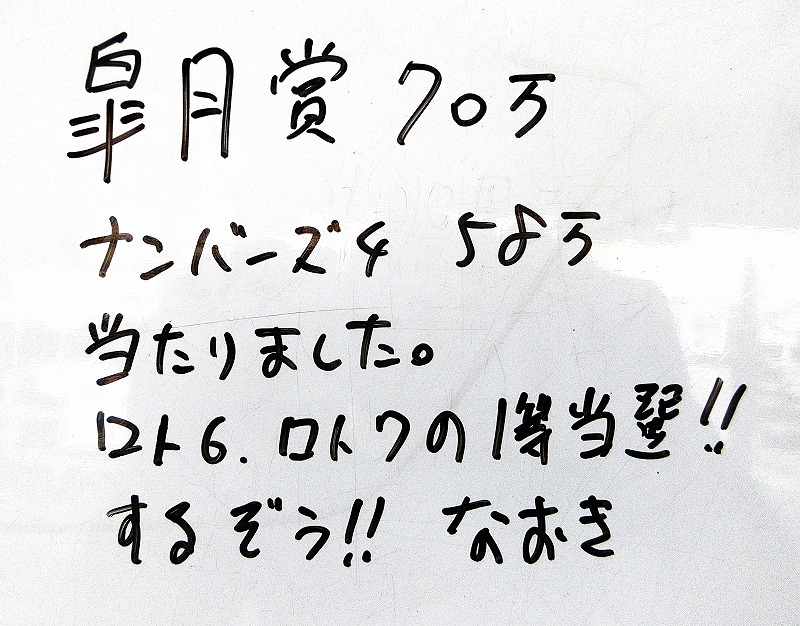 皐月賞 70万
ナンバーズ4 58万
当たりました。
ロト6.ロト7の1等当選!!
するぞう!! なおき